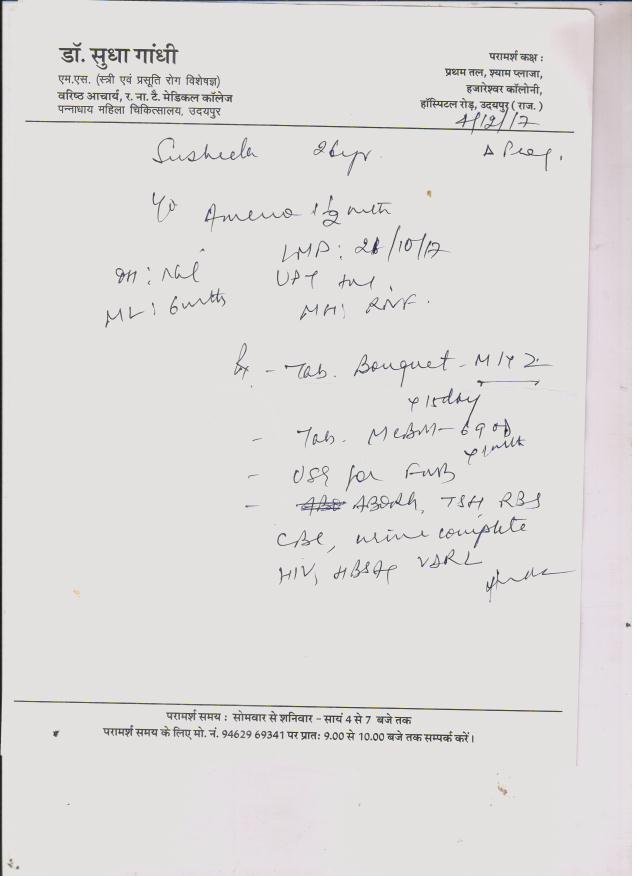 डॉ. सुधा गांधी
एम.एस. (स्त्री एवं प्रसूति रोग विशेषज्ञ)
वरिष्ठ आचार्य, र. ना. टै. मेडिकल कॉलेज
पन्नाधाय महिला चिकित्सालय, उदयपुर
परामर्श कक्ष :
प्रथम तल, श्याम प्लाजा,
हजारेश्वर कॉलोनी,
हॉस्पिटल रोड़, उदयपुर ( राज. )
4/12/17
Susheela 26yr. Δ Preg.
Y/O Ameno 1 1/2 mth
LMP: /10/17
UPT
ML: 6 mths MH: RNF.
Rx - Tab. Bouquet - M
x 15day
- Tab.
- USG for FWB
- ABORh, TSH RBS
CBC, urine complete
HIV, HBSAg VDRL
परामर्श समय : सोमवार से शनिवार - सायं 4 से 7 बजे तक
परामर्श समय के लिए मो. नं. 94629 69341 पर प्रातः 9.00 से 10.00 बजे तक सम्पर्क करें।